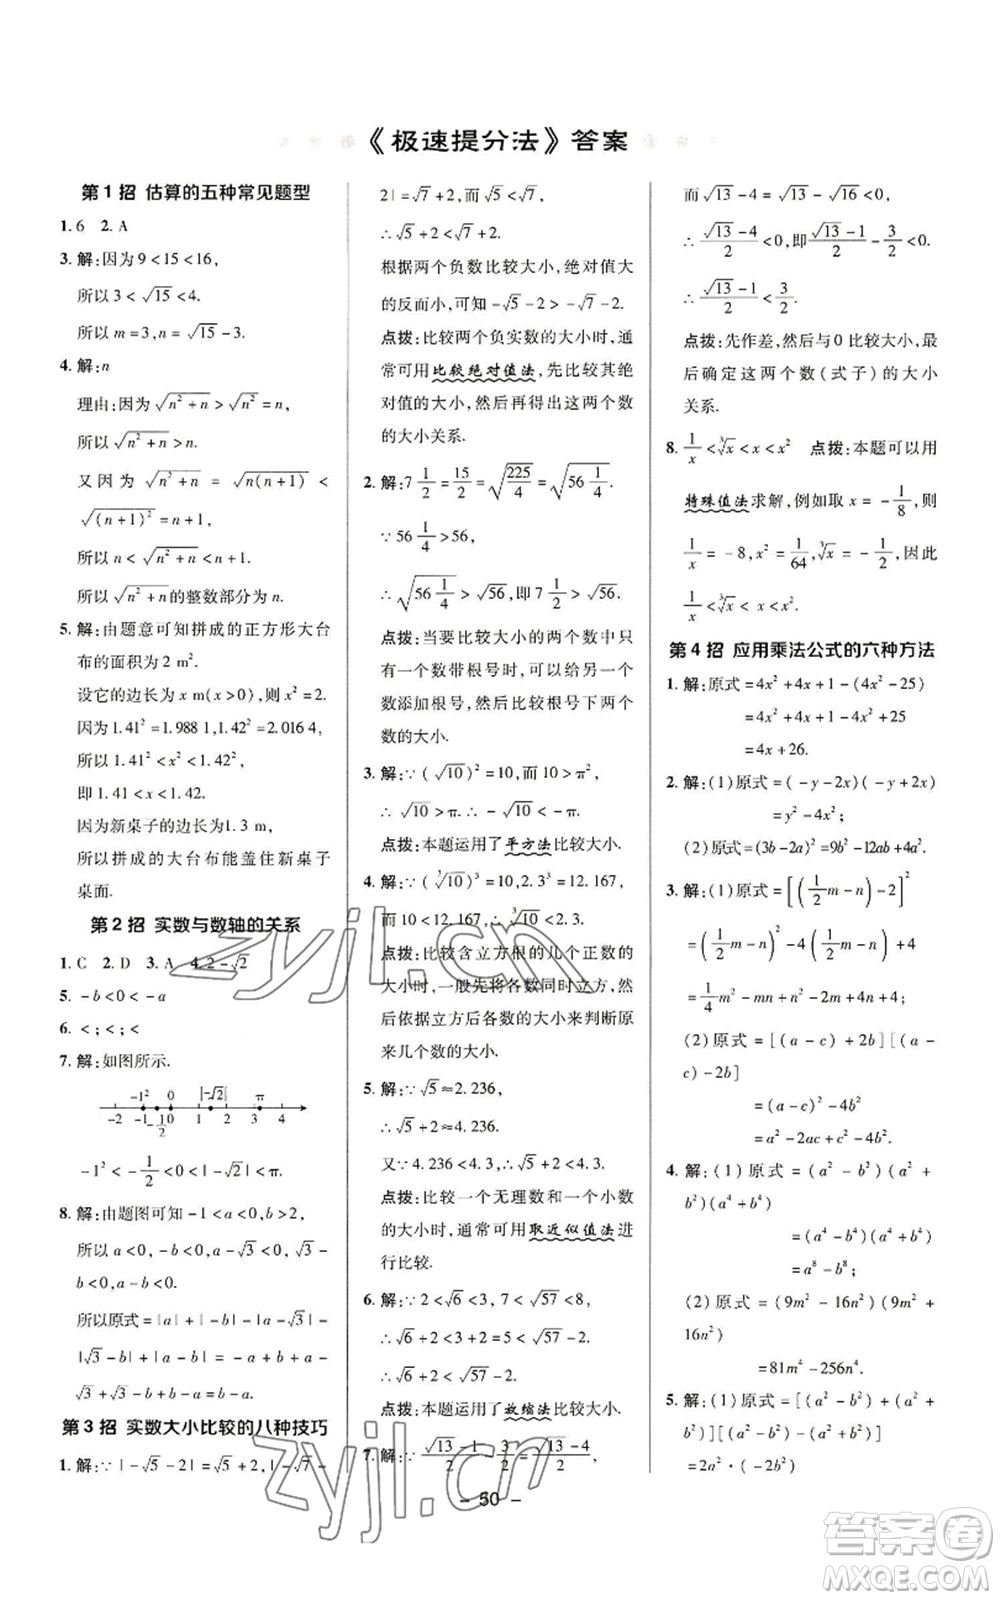 《极速提分法》答案
第1招 估算的五种常见题型
1.6 2. A
3. 解:因为 9<15<16,
所以 3<√15<4.
所以 m=3,n=√15-3.
4. 解:n
理由:因为√(n²+n)>√(n²)=n,
所以√(n²+n)>n.
又因为√(n²+n)=√(n(n+1))<
√((n+1)²)=n+1,
所以 n<√(n²+n)<n+1.
所以√(n²+n)的整数部分为 n.
5. 解:由题意可知拼成的正方形大台
布的面积为 2 m².
设它的边长为 x m(x>0),则 x²=2.
因为 1.41²=1.988 1,1.42²=2.016 4,
所以 1.41²<x²<1.42².
即 1.41<x<1.42.
因为新桌子的边长为1.3 m,
所以拼成的大台布能盖住新桌子
桌面.
第2招 实数与数轴的关系
1. C 2. D 3. A 4. 2-√2
5. -b<0<-a
6. <;<;<
7. 解:如图所示.
-1² 0 |-√2| π
-2 -1 -1/2 0 1 2 3 4
-1²<-1/2<0<|-√2|<π.
8. 解:由题图可知-1<a<0,b>2,
所以 a<0,-b<0,a-√3<0,√3-
b<0,a-b<0.
所以原式=|a|-|-b|+|a-√3|+
|√3-b|+|a-b|=-a-b-a+
√3-√3+b-a+b=b-3a.
第3招 实数大小比较的八种技巧
1. 解:∵|-√5-2|=√5+2,|-√7-
2|=√7+2,而√5<√7,
∴√5+2<√7+2.
根据两个负数比较大小,绝对值大
的反而小,可知-√5-2>-√7-2.
点拨:比较两个负实数的大小时,通常
可以用比较绝对值法,先比较其绝
对值的大小,然后再得出这两个数
的大小关系.
2. 解:7 1/2=15/2=√(225/4)=√(56 1/4).
∵56 1/4>56,
∴√(56 1/4)>√56,即7 1/2>√56.
点拨:当要比较大小的两个数其中
一个数带根号时,可以给不带根号的
数添加根号,然后再比较这两个
数的大小.
3. 解:∵(√10)²=10,而10>π²,
∴√10>π.∴-√10<-π.
点拨:本题运用了平方法比较大小.
4. 解:∵(∛10)³=10,2.3³=12.167,
而 10<12.167,∴∛10<2.3.
点拨:比较含立方根的几个正数的
大小时,一般先将各数同时立方,
然后依据立方后各数的大小来判断原
来几个数的大小.
5. 解:∵√5≈2.236,
∴√5+2≈4.236.
又∵4.236<4.3,∴√5+2<4.3.
点拨:比较一个无理数和一个小数
的大小时,通常可用取近似值法
进行比较.
6. 解:∵2<√6<3,7<√57<8,
∴√6+2<3+2=5<√57-2.
∴√6+2<√57-2.
点拨:本题运用了放缩法比较大小.
7. 解:∵(√13-1)/2-3/2=(√13-4)/2,
而√13-4=√13-√16<0,
∴(√13-4)/2<0,即(√13-1)/2-3/2<0.
∴(√13-1)/2<3/2.
点拨:先作差,差与0比较大小,最
后确定这两个数(式子)的大小
关系.
8. 1/x<∛x<x<x² 点拨:本题可以用
特殊值法求解,例如取 x=-1/8,则
1/x=-8,x²=1/64,∛x=-1/2,因此
1/x<∛x<x<x².
第4招 应用乘法公式的六种方法
1. 解:原式=4x²+4x+1-(4x²-25)
=4x²+4x+1-4x²+25
=4x+26.
2. 解:(1)原式=(-y-2x)(-y+2x)
=y²-4x²;
(2)原式=(3b-2a)²=9b²-12ab+4a².
3. 解:(1)原式=[(1/2m-n)-2]²
=(1/2m-n)²-4(1/2m-n)+4
=1/4m²-mn+n²-2m+4n+4;
(2)原式=[(a-c)+2b][(a-
c)-2b]
=(a-c)²-4b²
=a²-2ac+c²-4b².
4. 解:(1)原式=(a²-b²)(a²+
b²)(a⁴+b⁴)
=(a⁴-b⁴)(a⁴+b⁴)
=a⁸-b⁸;
(2)原式=(9m²-16n²)(9m²+
16n²)
=81m⁴-256n⁴.
5. 解:(1)原式=[(a²-b²)+(a²+
b²)][(a²-b²)-(a²+b²)]
=2a²·(-2b²)
- 50 -
zyjl.cn
zyjl.cn
答案圈
MXQE.COM